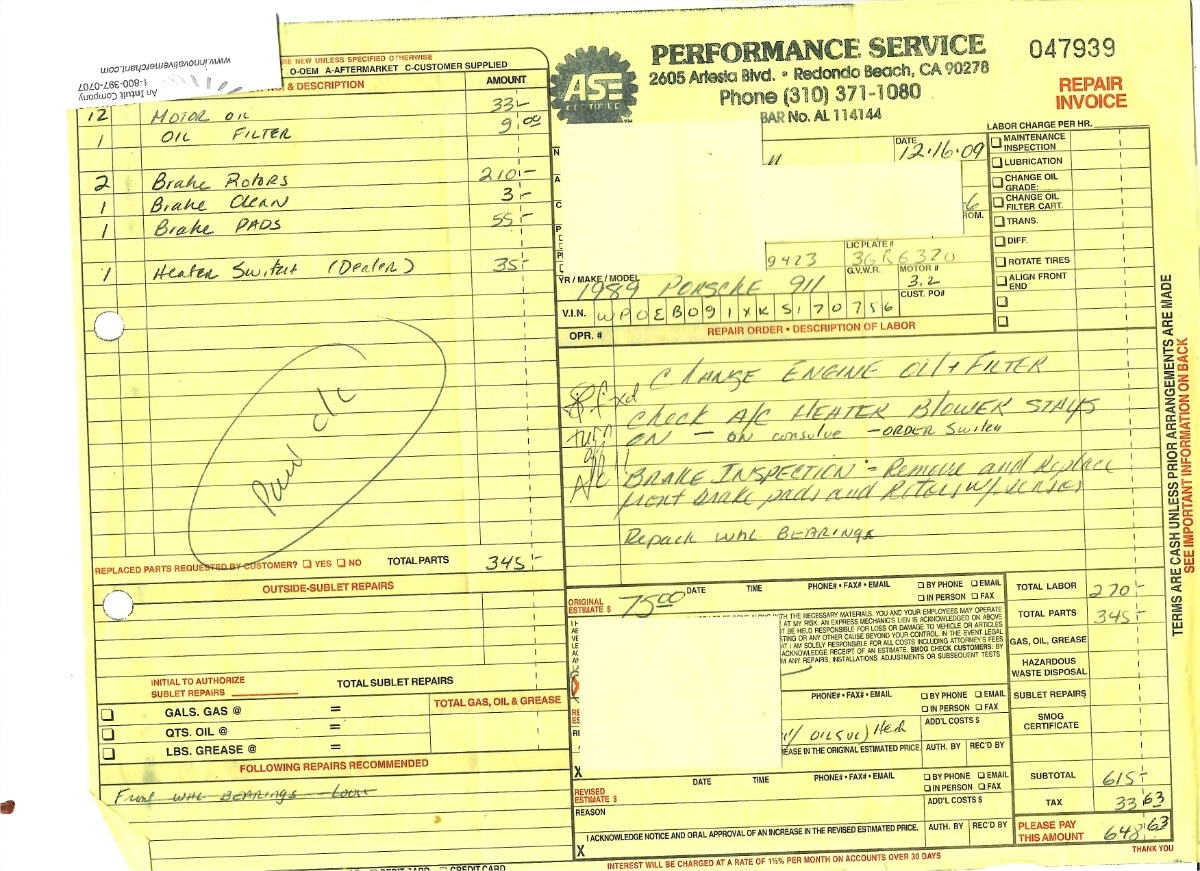 www.innovativemerchant.com
1-800-397-0707
An Intuit Company
RE NEW UNLESS SPECIFIED OTHERWISE
O-OEM A-AFTERMARKET C-CUSTOMER SUPPLIED
& DESCRIPTION AMOUNT
12 MOTOR OIL 33-
1 OIL FILTER 9.00
2 Brake Rotors 210-
1 Brake Clean 3-
1 Brake PADS 55-
1 Heater Switch (Dealer) 35-
Paid
REPLACED PARTS REQUESTED BY CUSTOMER? YES NO TOTAL PARTS 345-
OUTSIDE-SUBLET REPAIRS
INITIAL TO AUTHORIZE
SUBLET REPAIRS
TOTAL SUBLET REPAIRS
GALS. GAS @ =
QTS. OIL @ =
LBS. GREASE @ =
TOTAL GAS, OIL & GREASE
FOLLOWING REPAIRS RECOMMENDED
Front WHL BEARINGS Loose
ASE
CERTIFIED
PERFORMANCE SERVICE
2605 Artesia Blvd. • Redondo Beach, CA 90278
Phone (310) 371-1080
BAR No. AL 114144
047939
REPAIR
INVOICE
DATE 12-16-09
9423
LIC PLATE # 3GR6320
G.V.W.R. MOTOR # 3.2
CUST. PO#
YR / MAKE / MODEL 1989 PORSCHE 911
V.I.N. WP0EB091XKS170756
OPR. # REPAIR ORDER • DESCRIPTION OF LABOR
LABOR CHARGE PER HR.
MAINTENANCE INSPECTION
LUBRICATION
CHANGE OIL GRADE:
CHANGE OIL FILTER CART.
TRANS.
DIFF.
ROTATE TIRES
ALIGN FRONT END
CHANGE ENGINE OIL + FILTER
Check A/C HEATER BLOWER STAYS
ON - ON consolve - ORDER Switch
BRAKE INSPECTION - Remove and Replace
front brake pads and Rotors w/ senses
Repack WHL BEARINGS
turn
A/C
TERMS ARE CASH UNLESS PRIOR ARRANGEMENTS ARE MADE
SEE IMPORTANT INFORMATION ON BACK
ORIGINAL ESTIMATE $ 75.00 DATE TIME PHONE# • FAX# • EMAIL BY PHONE EMAIL
IN PERSON FAX
WITH THE NECESSARY MATERIALS. YOU AND YOUR EMPLOYEES MAY OPERATE
AT MY RISK. AN EXPRESS MECHANICS LIEN IS ACKNOWLEDGED ON ABOVE
BE HELD RESPONSIBLE FOR LOSS OR DAMAGE TO VEHICLE OR ARTICLES
OR ANY OTHER CAUSE BEYOND YOUR CONTROL. IN THE EVENT LEGAL
I AM SOLELY RESPONSIBLE FOR ALL COSTS INCLUDING ATTORNEY'S FEES
ACKNOWLEDGE RECEIPT OF AN ESTIMATE. SMOG CHECK CUSTOMERS: BY
ANY REPAIRS, INSTALLATIONS, ADJUSTMENTS OR SUBSEQUENT TESTS.
PHONE# • FAX# • EMAIL BY PHONE EMAIL
IN PERSON FAX
ADD'L COSTS $
EASE IN THE ORIGINAL ESTIMATED PRICE. AUTH. BY REC'D BY
X
DATE TIME PHONE# • FAX# • EMAIL BY PHONE EMAIL
IN PERSON FAX
REVISED ESTIMATE $
ADD'L COSTS $
REASON
I ACKNOWLEDGE NOTICE AND ORAL APPROVAL OF AN INCREASE IN THE REVISED ESTIMATED PRICE. AUTH. BY REC'D BY
X
TOTAL LABOR 270-
TOTAL PARTS 345-
GAS, OIL, GREASE
HAZARDOUS WASTE DISPOSAL
SUBLET REPAIRS
SMOG CERTIFICATE
SUBTOTAL 615-
TAX 33 63
PLEASE PAY THIS AMOUNT 648 63
THANK YOU
INTEREST WILL BE CHARGED AT A RATE OF 1½% PER MONTH ON ACCOUNTS OVER 30 DAYS
CREDIT CARD